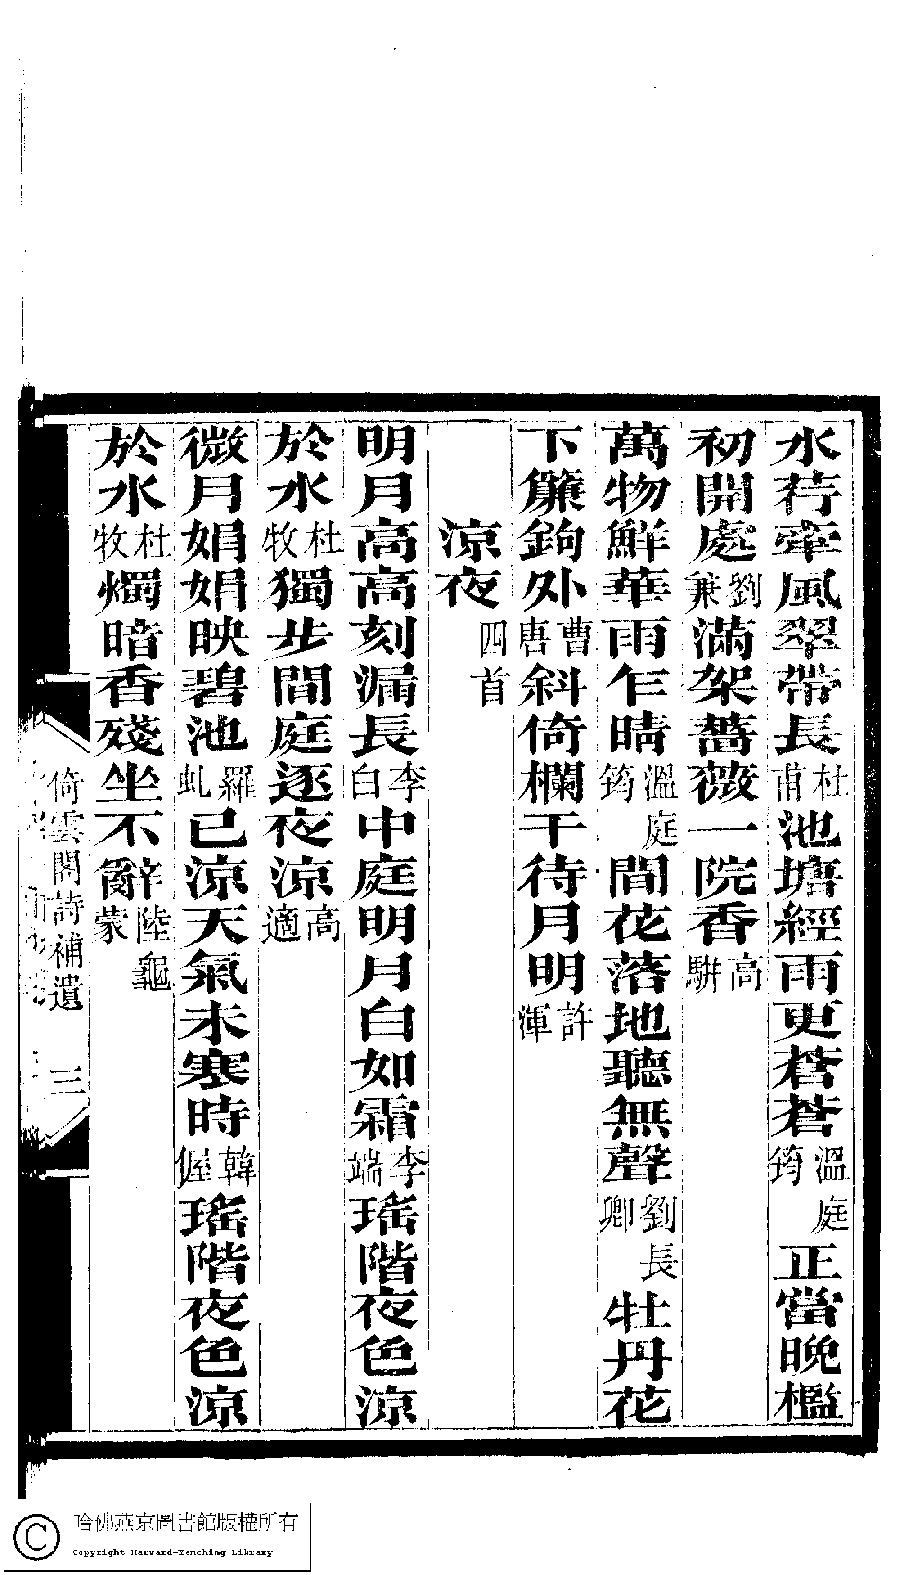 水荇牽風翠帶長杜甫池塘經雨更蒼蒼溫庭筠正當晚檻
初開處劉兼滿架薔薇一院香高駢
萬物鮮華雨乍晴溫庭筠閒花落地聽無聲劉長卿牡丹花
下簾鉤外曹唐斜倚欄干待月明許渾
涼夜四首
明月高高刻漏長李白中庭明月白如霜李端瑤階夜色涼
於水杜牧獨步閒庭逐夜涼高適
微月娟娟映碧池羅虬已涼天氣未寒時韓偓瑤階夜色涼
於水杜牧燭暗香殘坐不辭陸龜蒙
倚雲閣詩補遺
三
哈佛燕京圖書館版權所有
Copyright Harvard-Yenching Library